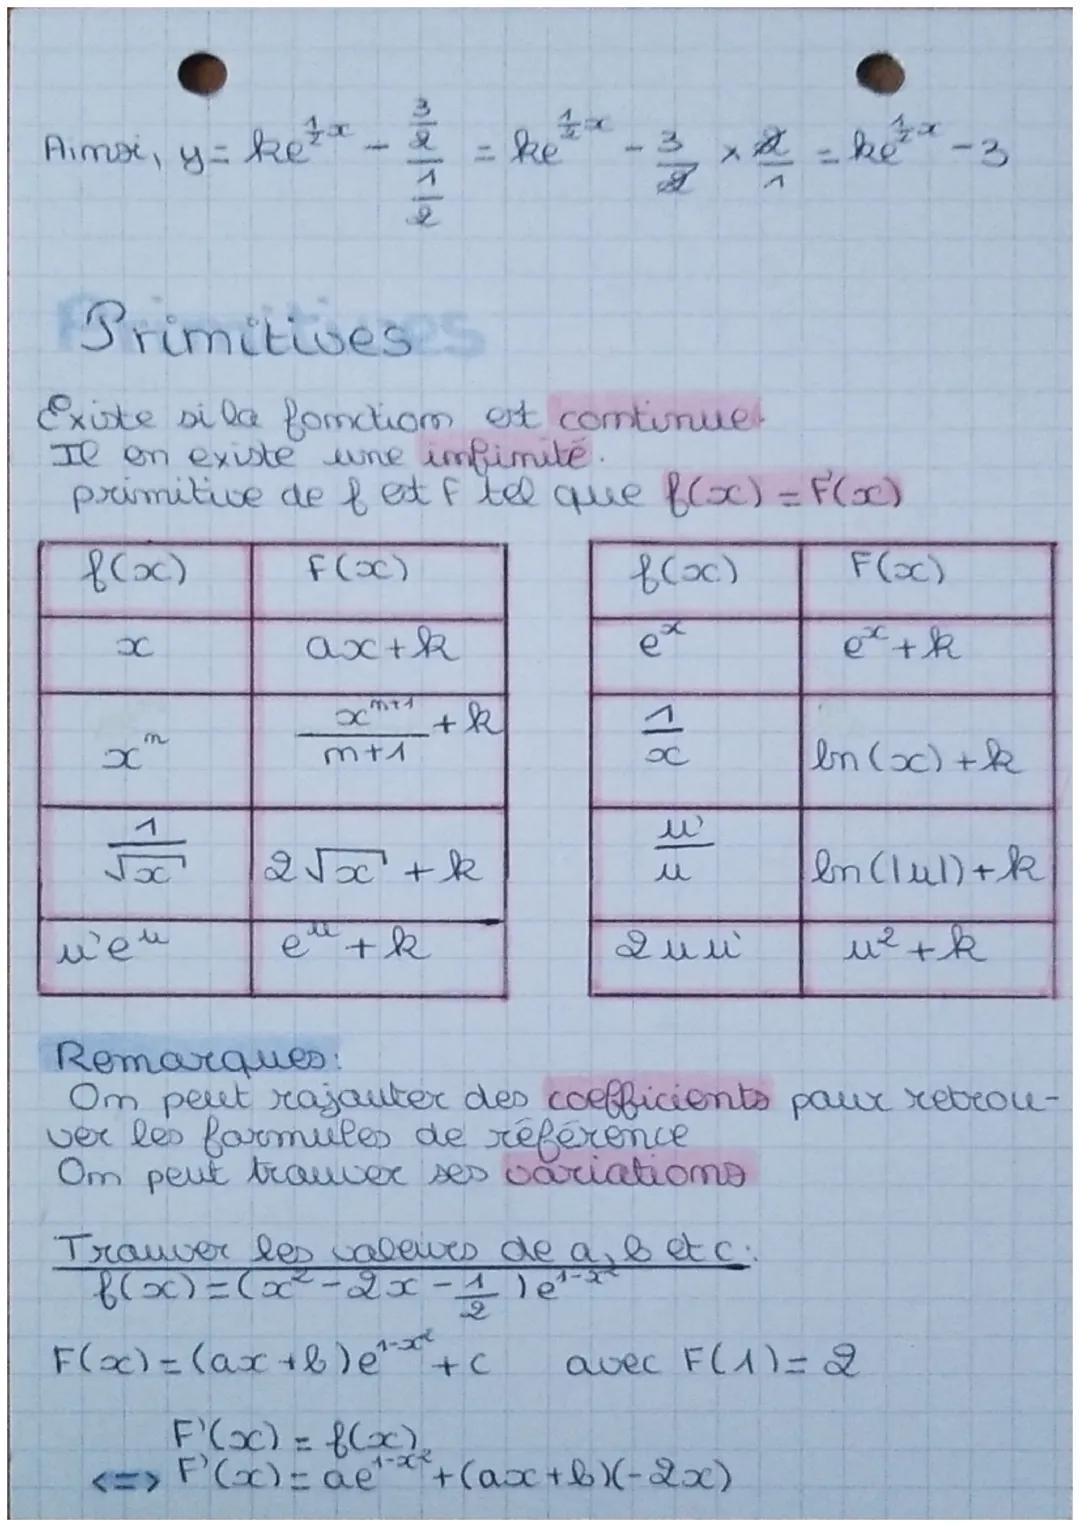 Ainsi, y = ke^{\frac{1}{2}x} - \frac{\frac{3}{2}}{\frac{1}{2}} = ke^{\frac{1}{2}x} - \frac{3}{2} × \frac{2}{1} = ke^{\frac{1}{2}x} - 3
Primitives
Existe si la fonction est continue.
Il en existe une infinité.
primitive de f est F tel que f(x) = F'(x)
f(x) F(x)
x ax+k
x^n \frac{x^{n+1}}{n+1} + k
\frac{1}{\sqrt{x}} 2\sqrt{x} + k
u'e^u e^u + k
f(x) F(x)
e^x e^x + k
\frac{1}{x} ln(x) + k
\frac{u'}{u} ln(|u|) + k
2uu' u² + k
Remarques:
On peut rajouter des coefficients pour retrou-
ver les formules de référence
On peut trouver ses variations
Trouver les valeurs de a, b et c:
f(x) = (x² - 2x - \frac{1}{2})e^{1-x²}
F(x) = (ax+b)e^{1-x²} + c avec F(1) = 2
F'(x) = f(x)
<=> F'(x) = ae^{1-x²} + (ax+b)(-2x)